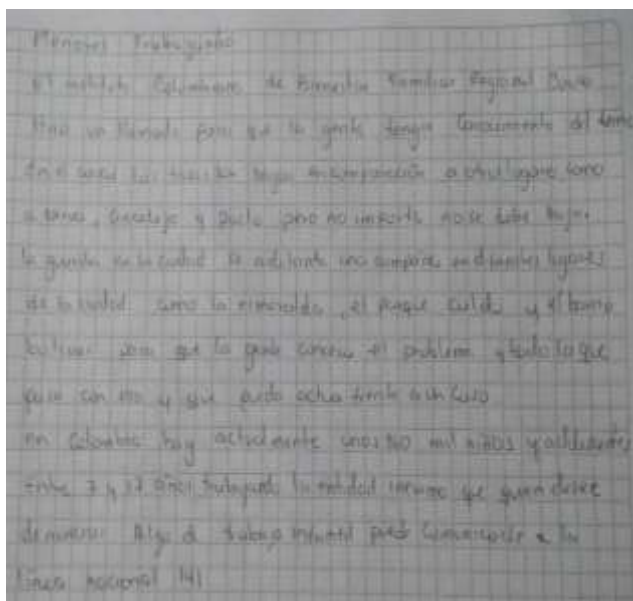 Menores Trabajando
El instituto Colombiano de Bienestar Familiar Regional
Hizo un llamado para que la gente tenga Conocimiento del tema
En el cauca la en comparación a otros lugares como
a , y pasto pero no importa no se debe bajar
la guardia en la ciudad se adelanta una campaña en diferentes lugares
de la ciudad como la esmeralda, el parque caldas y el barrio
bolivar para que la gente conozca el problema y todo lo que
pasa con eso y que pueda actuar frente a un caso
en Colombia hay actualmente unos mil niños y adolescentes
entre 7 y 17 años trabajando la entidad informa que quien desee
denunciar Algo de trabajo infantil puede comunicarse a la
linea nacional 141